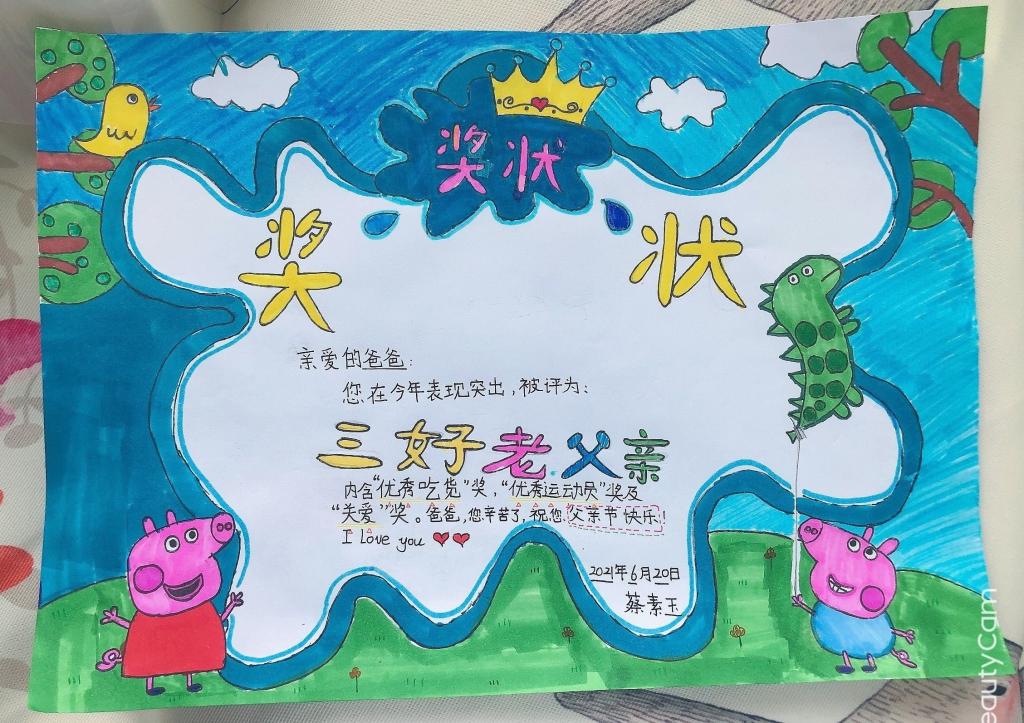 奖状
奖状
亲爱的爸爸：
您在今年表现突出，被评为：
三好老父亲
内含“优秀吃货”奖，“优秀运动员”奖及
“关爱”奖。爸爸，您辛苦了，祝您父亲节快乐！
I love you
2021年6月20日
蔡素玉
eautyCam